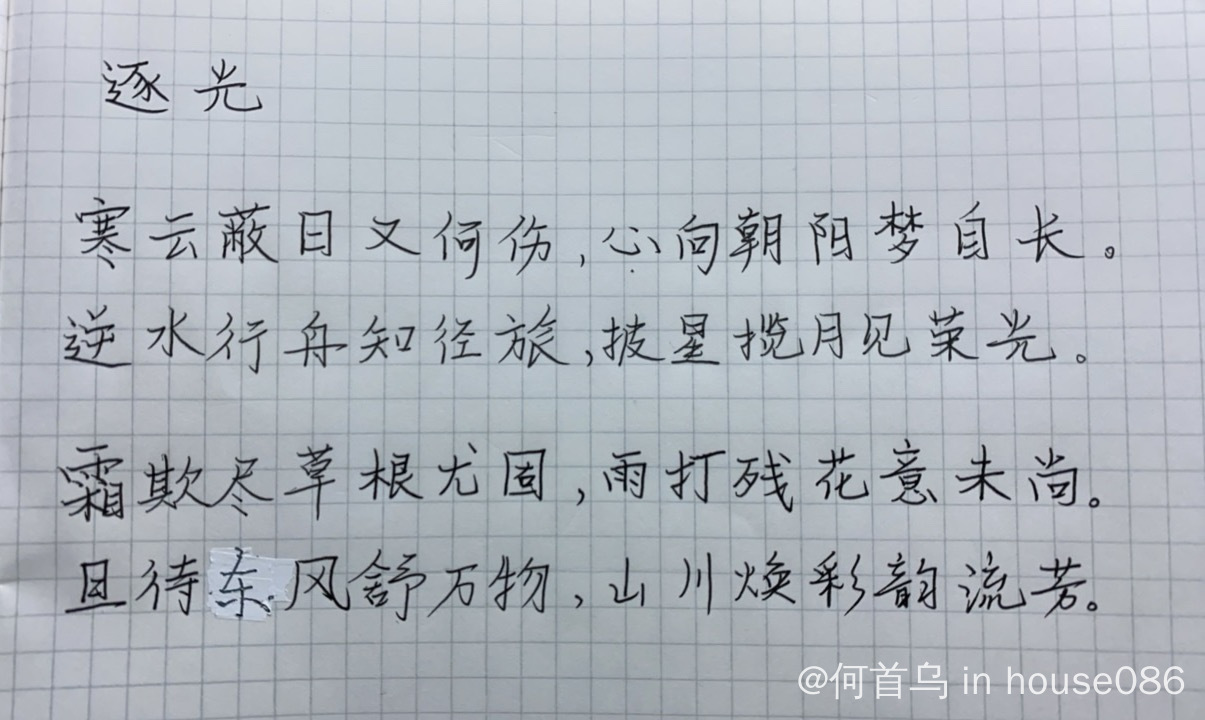 逐光
寒云蔽日又何伤,心向朝阳梦自长。
逆水行舟知径旅,披星揽月见荣光。
霜欺尽草根尤固,雨打残花意未尚。
且待东风舒万物,山川焕彩韵流芳。
@何首乌 in house086